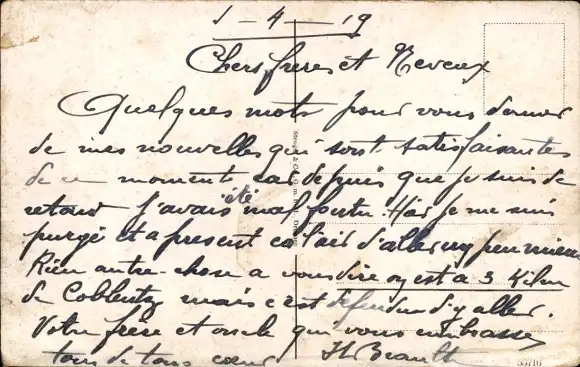 1 - 4 - 19
Chers freres et Neveux
Quelques mots pour vous donner
de mes nouvelles qui sont satisfaisantes
de ce moment car depuis que je suis de
retour j'avais été mal foutu. Hier je me suis
purgé et a present ca l'air d'aller un peu mieux
Rien autre chose a vous dire on est a 3 Kilm
de Coblentz mais c'est defendu d'y aller.
Votre frere et oncle qui vous embrasse
tous de tous coeur H Beault